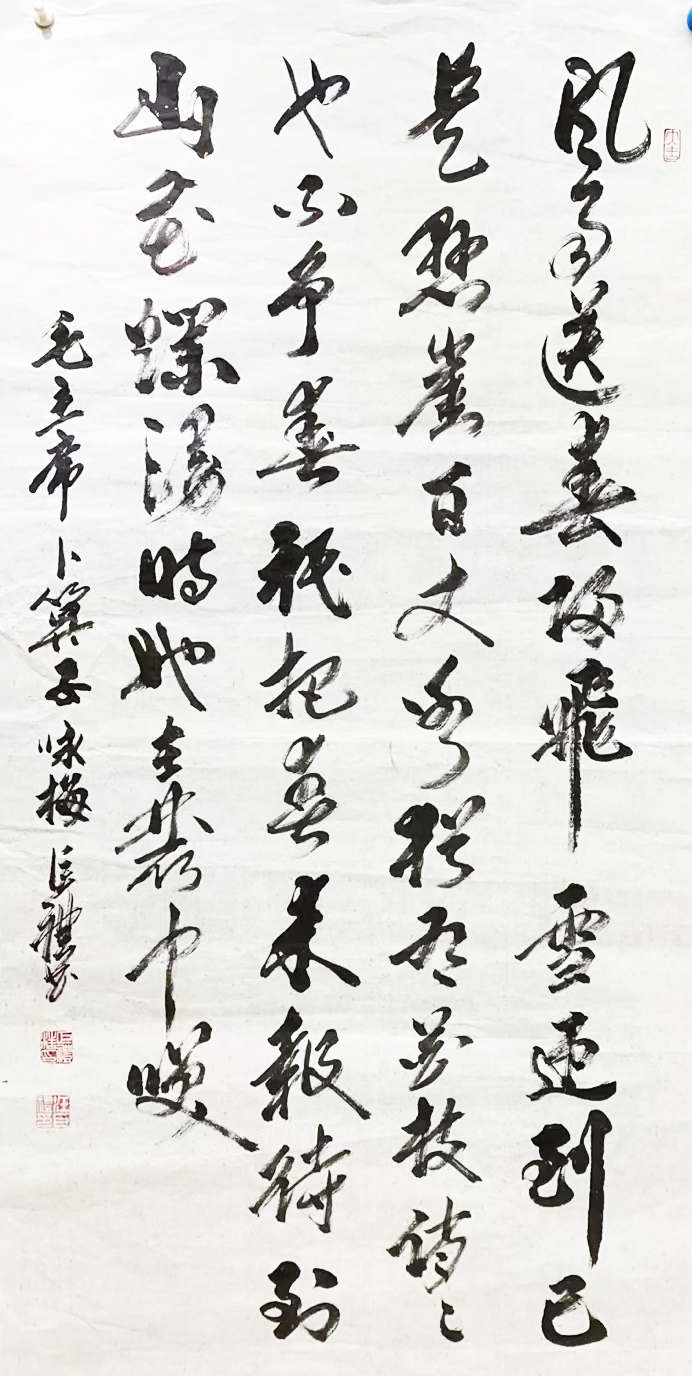 风雨送春归飛雪到已
是懸崖百丈冰猶有花枝俏〻
也不争春祇把春来報待到
山花爛漫時她在叢中咲
毛主席卜算子咏梅